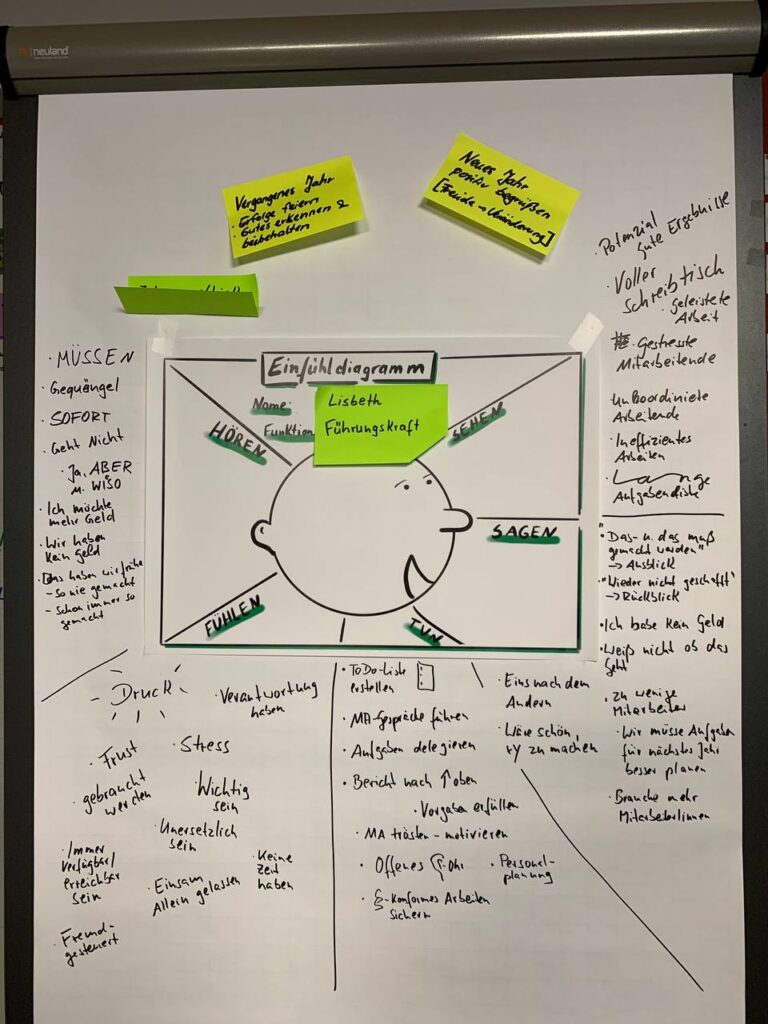 neuland
Vergangenes Jahr
· Erfolge feiern
· Gutes erkennen &
beibehalten
Neues Jahr
positiv begrüßen
[Freude → Veränderung]
Einfühldiagramm
Name:
Funktion
Lisbeth
Führungskraft
HÖREN
SEHEN
SAGEN
TUN
FÜHLEN
· MÜSSEN
· Gequängel
· SOFORT
· Geht Nicht
· Ja, ABER
u. WISO
· Ich möchte
mehr Geld
· Wir haben
kein Geld
· Das haben wir frühe
- so nie gemacht
- schon immer so
gemacht
· Potenzial
gute Ergebnisse
· Voller
Schreibtisch
· geleistete
Arbeit
· Gestresste
Mitarbeitende
unkoordiniete
Arbeitende
· Ineffizientes
Arbeiten
· Lange
Aufgabenliste
"Das- u. das muß
gemacht werden"
→ Ausblick
"Wieder nicht geschafft"
→ Rückblick
· Ich habe kein Geld
· Weiß nicht ob das
geht
· zu wenige
Mitarbeiter
· Wir müsse Aufgaben
für nächstes Jahr
besser planen
· Brauche mehr
MitarbeiterInnen
· ToDo-Liste
erstellen
· MA-Gespräche führen
· Aufgaben delegieren
· Bericht nach ↑ oben
· Vorgaben erfüllen
· MA trösten - motivieren
· Offenes Ohr
· Personal-
planung
· §-konformes Arbeiten
sichern
· Eins nach dem
Andern
· Wäre schön,
xy zu machen
Druck
· Verantwortung
haben
· Frust
· Stress
· gebraucht
werden
· Wichtig
sein
· Unersetzlich
sein
· Immer
verfügbar/
erreichbar
sein
· Einsam
Allein gelassen
· Keine
Zeit
haben
· Fremd-
gesteuert